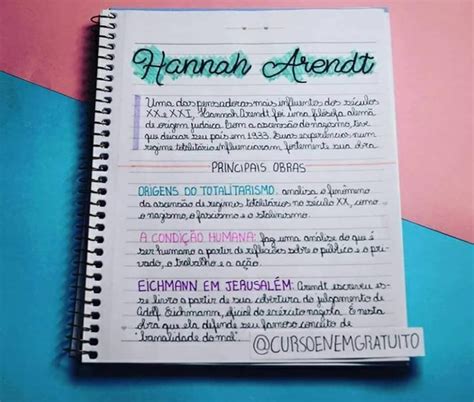 Hannah Arendt
Uma das pensadoras mais influentes dos séculos
XX e XXI, Hannah Arendt foi uma filósofa alemã
de origem judaica. Com a ascensão do nazismo, teve
que deixar seu país em 1933. Suas experiências num
regime totalitário influenciaram fortemente sua obra.
PRINCIPAIS OBRAS
ORIGENS DO TOTALITARISMO: analisa o fenômeno
da ascensão de regimes totalitários no século XX, como
o nazismo, o fascismo e o stalinismo.
A CONDIÇÃO HUMANA: faz uma análise do que é
ser humano a partir de reflexões sobre o público e o pri-
vado, o trabalho e a ação.
EICHMANN EM JERUSALÉM: Arendt escreveu es-
se livro a partir de sua cobertura do julgamento de
Adolf Eichmann, oficial do exército nazista. É nesta
obra que ela defende seu famoso conceito de
"banalidade do mal".
@CURSOENEMGRATUITO